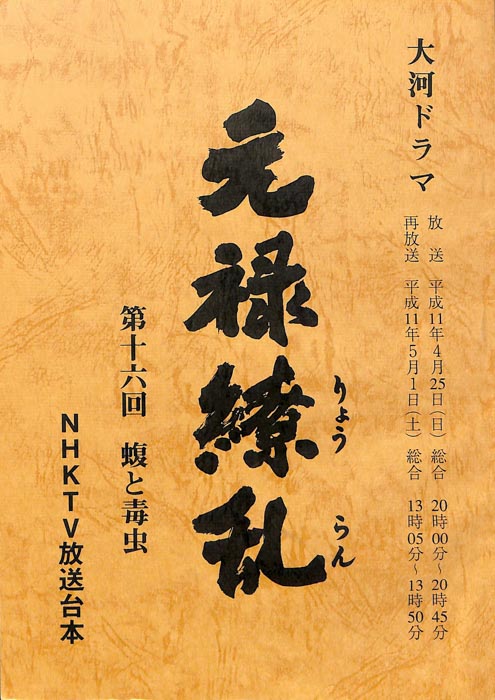 大河ドラマ
放送 平成11年4月25日(日) 総合 20時00分~20時45分
再放送 平成11年5月1日(土) 総合 13時05分~13時50分
元禄繚乱
りょう らん
第十六回 蝮と毒虫
NHKTV放送台本